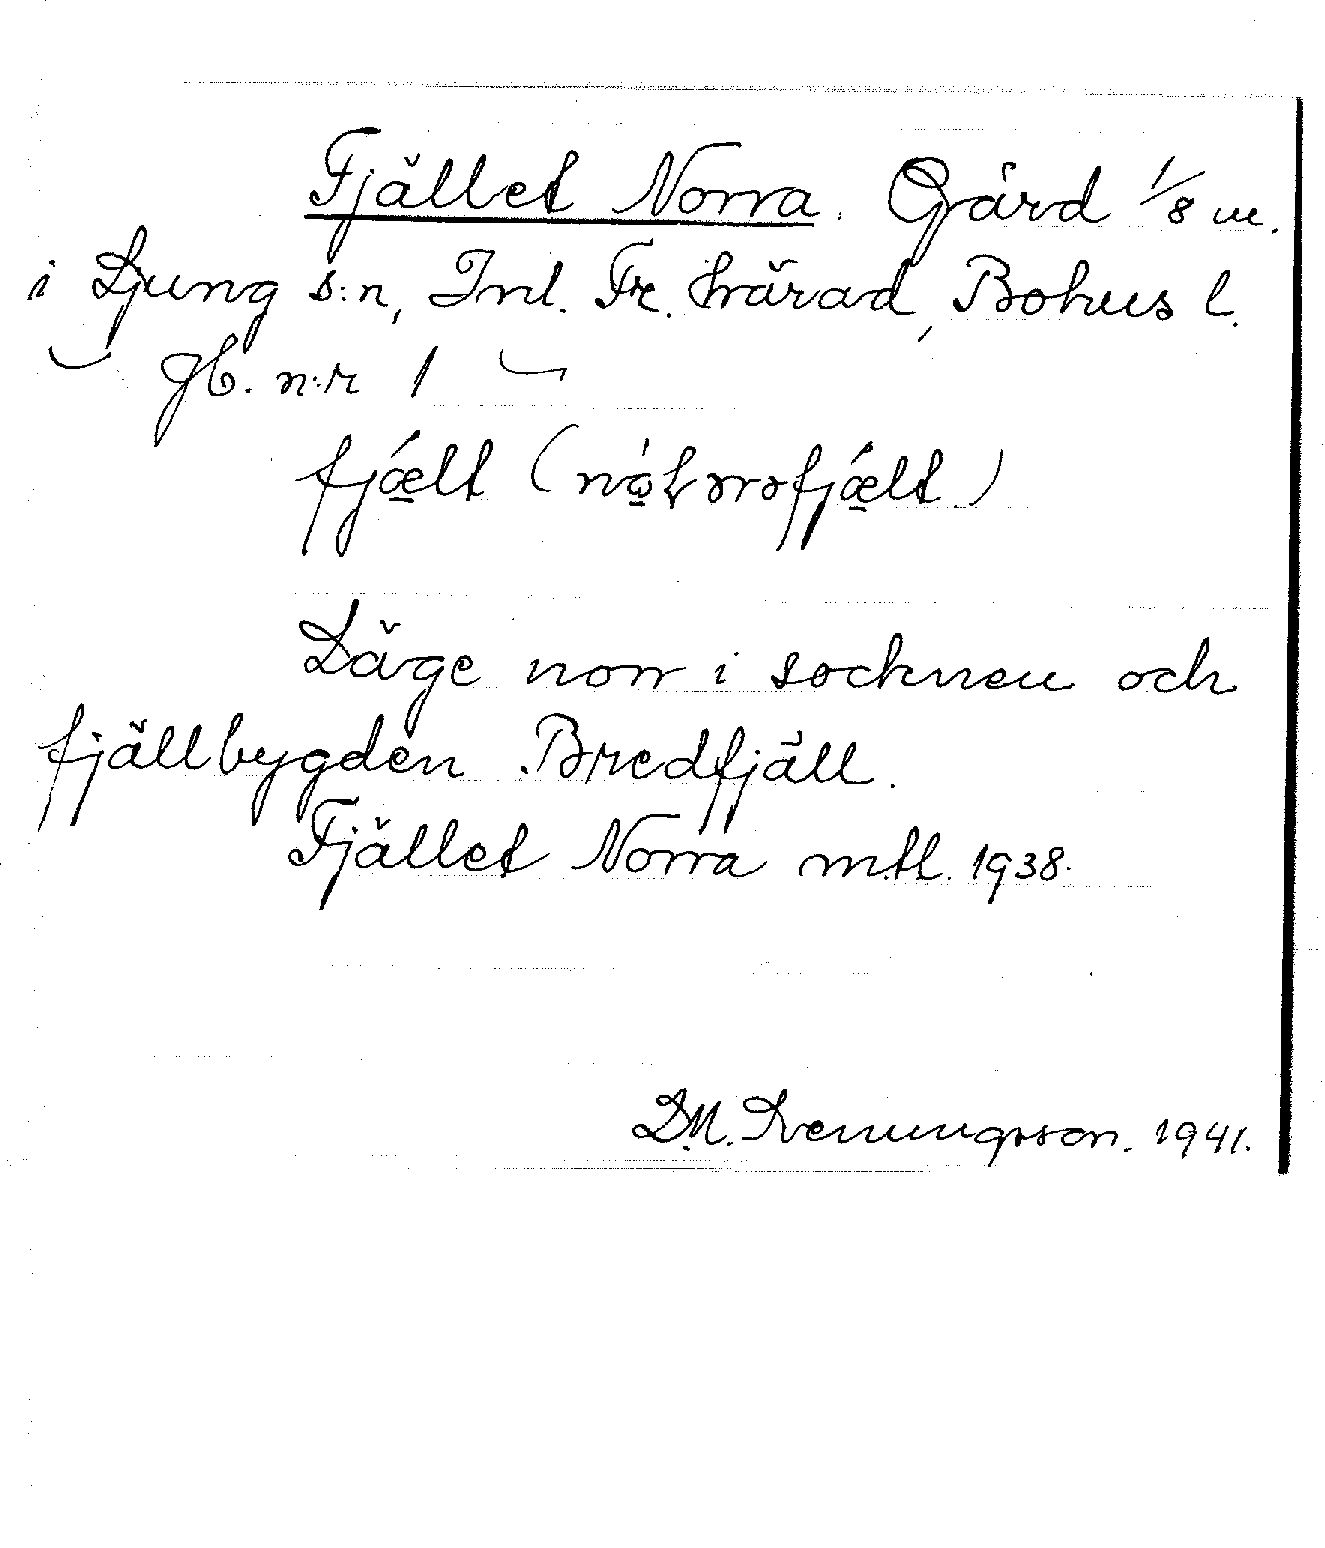 Fjället Norra. Gård 1/8 m.
i Ljung s:n, Inl. Fr. härad, Bohus l.
gb. n:r 1
fjælt (
Läge norr i socknen och
fjällbygden Bredfjäll.
Fjället Norra mtl. 1938.
D.M. 1941.